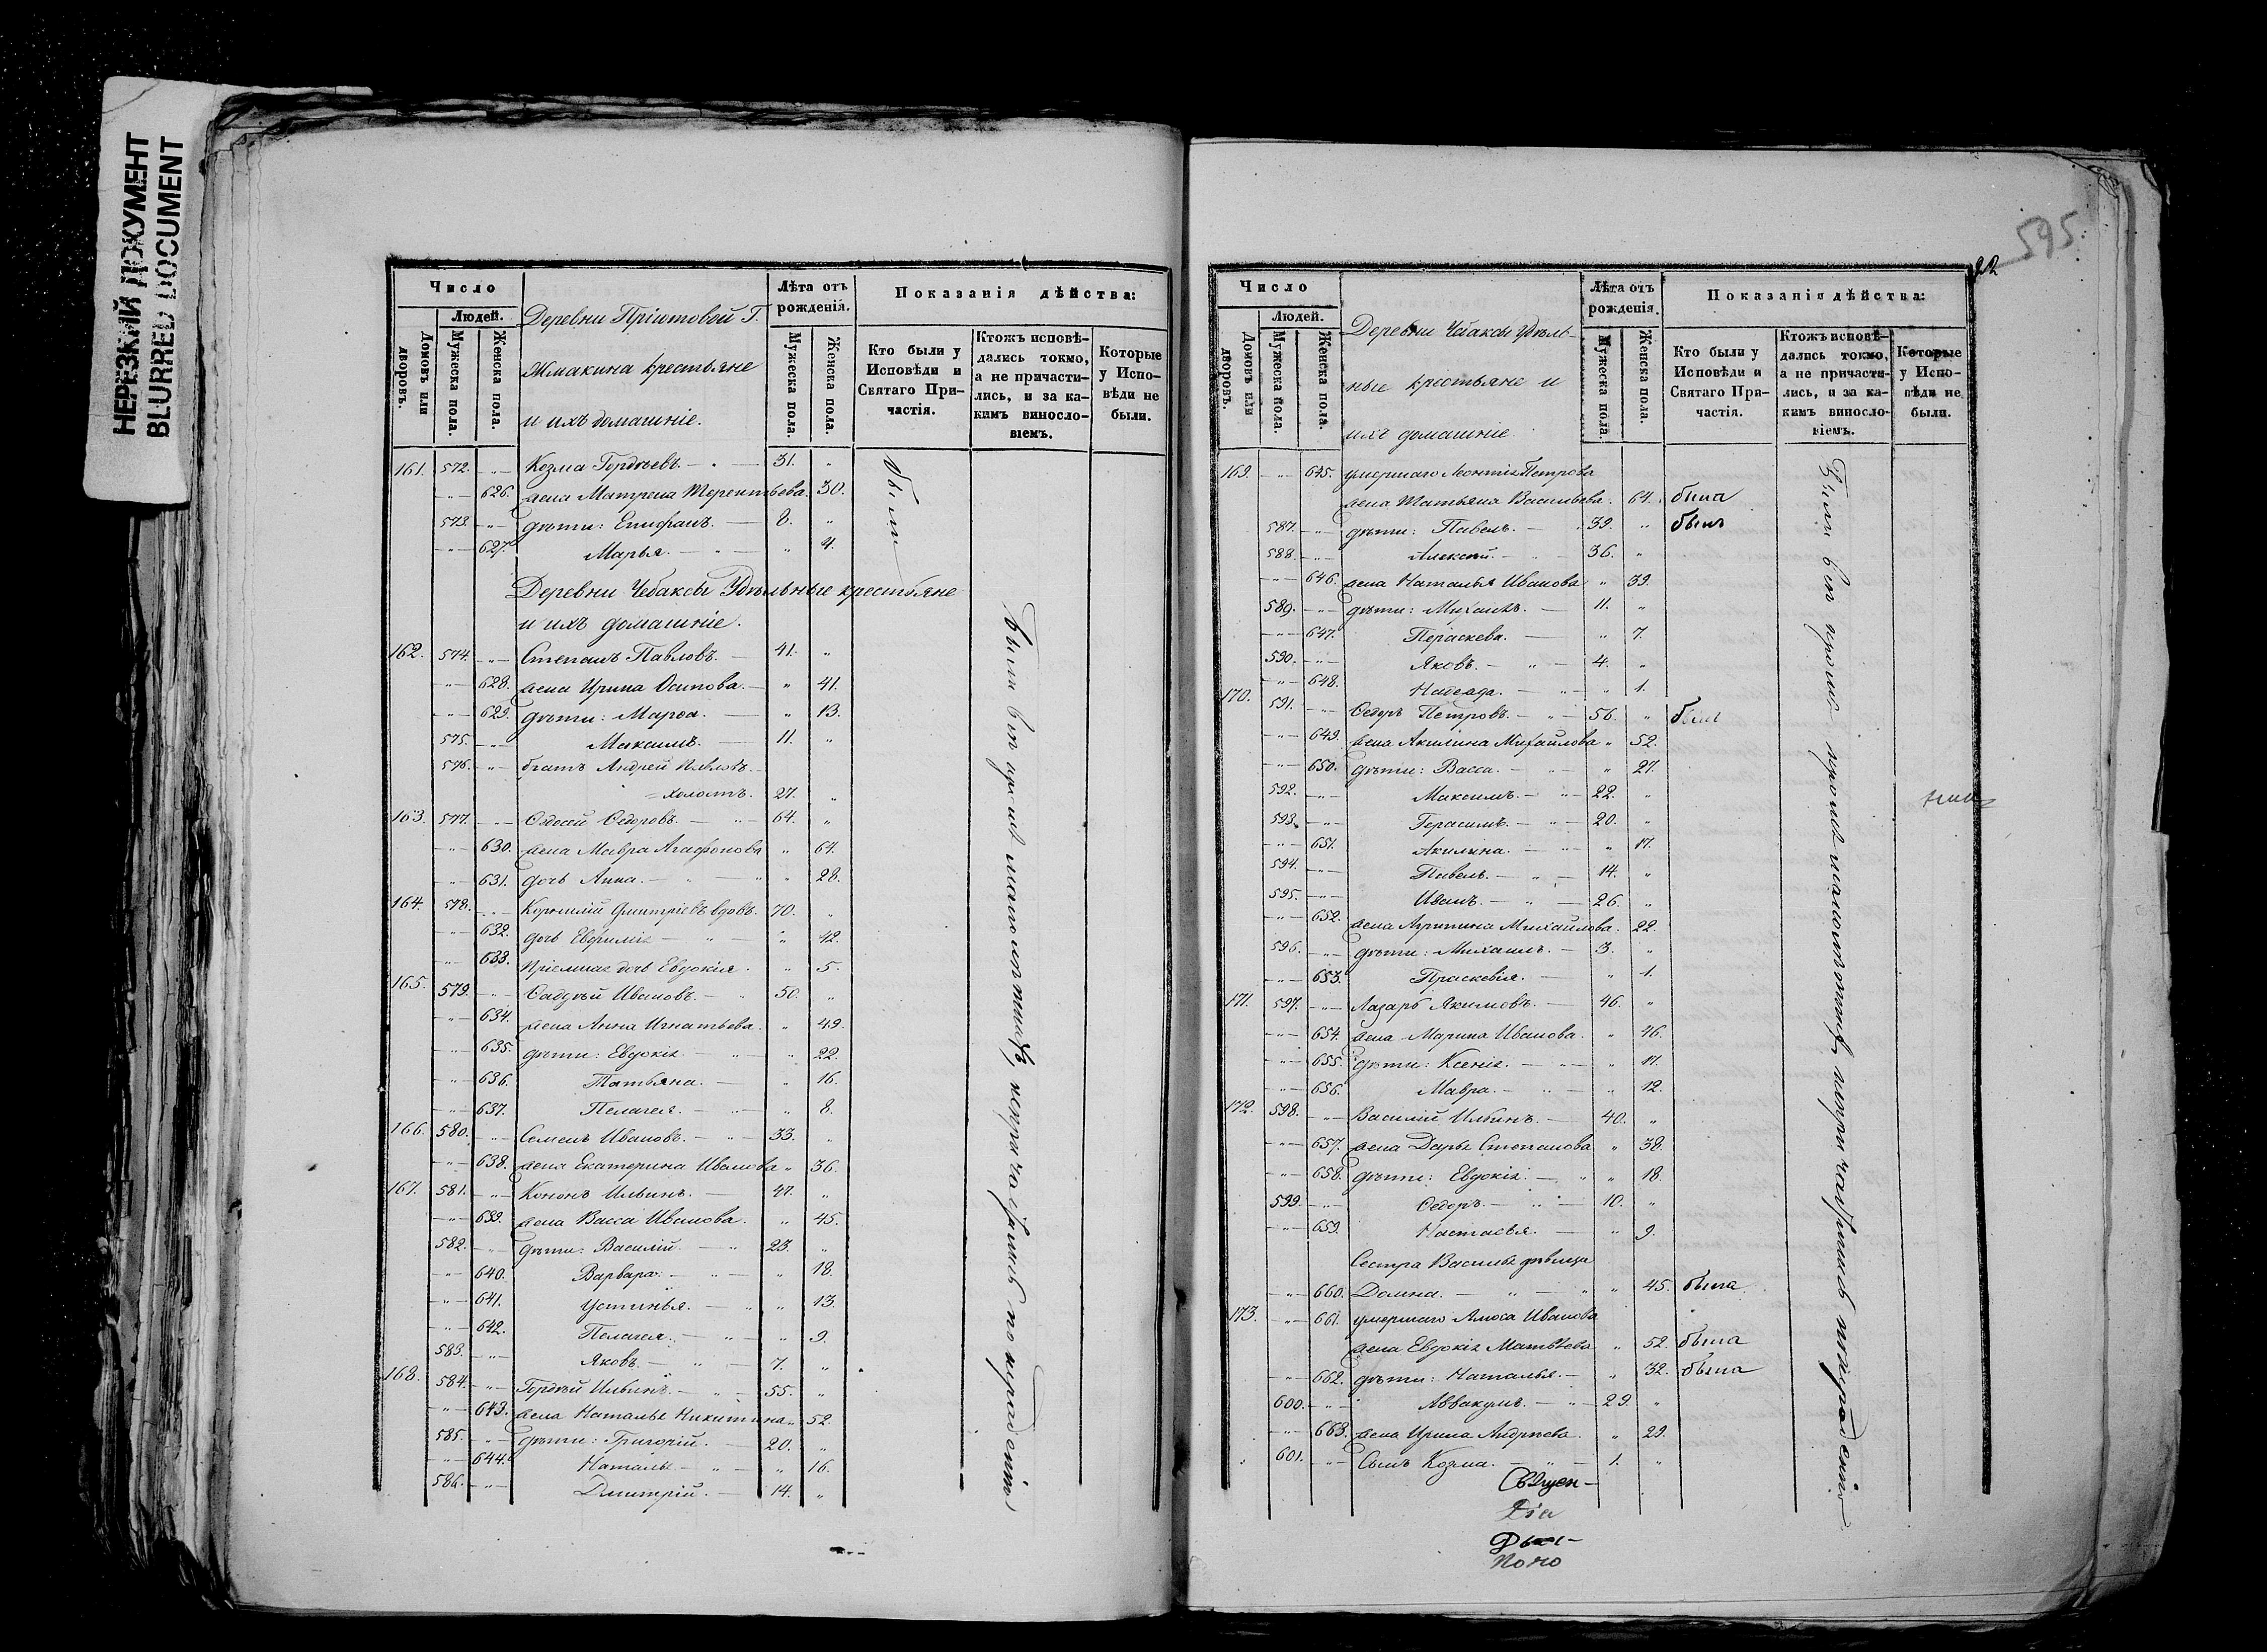 НЕРЕЗКИЙ ДОКУМЕНТ
BLURRED DOCUMENT
Число
Людей.
Домовъ или дворовъ.
Мужеска пола.
Женска пола.
Деревни Пріютовой Г.
Жмакина крестьяне
и ихъ домашніе.
Лѣта отъ рожденія.
Мужеска пола.
Женска пола.
Показанія дѣйства:
Кто были у Исповѣди и Святаго Причастія.
Ктожъ исповѣдались токмо, а не причастились, и за какимъ винословіемъ.
Которые у Исповѣди не были.
161. 572. Козма Гордѣевъ. 31.
626. жена Матрена Терентьева. 30.
573. дѣти: Епифанъ. 8.
627. Марья. 4.
были
Деревни Чебаксы Удѣльные крестьяне
и ихъ домашніе.
162. 574. Степанъ Павловъ. 41.
628. жена Ирина Осипова. 41.
629. дѣти: Марѳа. 13.
575. Максимъ. 11.
576. братъ Андрей Павловъ.
холостъ. 27.
163. 577. Ѳедосей Ѳедоровъ. 64.
630. жена Мавра Агафонова 64.
631. дочь Анна. 28.
164. 578. Корнилій Дмитріевъ вдовъ. 70.
632. дочь Евфимія 42.
633. Пріемная дочь Евдокія. 5.
165. 579. Ѳадѣй Ивановъ. 50.
634. жена Анна Игнатьева. 49.
635. дѣти: Евдокія. 22.
636. Татьяна. 16.
637. Пелагея. 8.
166. 580. Семенъ Ивановъ. 33.
638. жена Екатерина Иванова 36.
167. 581. Кононъ Ильинъ. 47.
639. жена Васса Иванова. 45.
582. дѣти: Василій. 23.
640. Варвара. 18.
641. Устинья. 13.
642. Пелагея. 9.
583. Яковъ. 7.
168. 584. Гордѣй Ильинъ. 55.
643. жена Наталья Никитина 52.
585. дѣти: Григорій. 20.
644. Наталья 16.
586. Дмитрій. 14.
Были вси кромѣ малолѣтныхъ, непричастились по нерадѣнію
595
Число
Людей.
Домовъ или дворовъ.
Мужеска пола.
Женска пола.
Деревни Чебаксы Удѣль-
ные крестьяне и
ихъ домашніе
Лѣта отъ рожденія.
Мужеска пола.
Женска пола.
Показанія дѣйства:
Кто были у Исповѣди и Святаго Причастія.
Ктожъ исповѣдались токмо, а не причастились, и за какимъ винословіемъ.
Которые у Исповѣди не были.
169. 645. умершаго Леонтія Петрова
жена Татьяна Васильева. 64. была
587. дѣти: Павелъ. 39. былъ
588. Алексѣй. 36.
646. жена Наталья Иванова 39.
589. дѣти: Михаилъ. 11.
647. Параскева. 7.
590. Яковъ. 4.
648. Надежда. 1.
170. 591. Ѳедоръ Петровъ. 56. былъ
649. жена Акилина Михайлова 52.
650. дѣти: Васса. 27.
592. Максимъ. 22.
593. Герасимъ. 20.
651. Акилина. 17.
594. Павелъ. 14.
595. Иванъ. 26.
652. жена Агрипина Михайлова. 22.
596. дѣти: Михаилъ. 3.
653. Праскевія. 1.
171. 597. Лазарь Якимовъ. 46.
654. жена Марина Иванова. 46.
655. дѣти: Ксенія. 17.
656. Мавра. 12.
172. 598. Василій Ильинъ. 40.
657. жена Дарья Степанова 38.
658. дѣти: Евдокія. 18.
599. Ѳедоръ. 10.
659. Настасья. 9.
Сестра Василья дѣвица
660. Домна. 45. была
173. 661. умершаго Амоса Иванова
жена Евдокія Матвѣева 52. была
662. дѣти: Наталья. 32. была
600. Аввакумъ. 29.
663. жена Ирина Андреева. 29.
601. Сынъ Козма. 1.
Были вси кромѣ малолѣтныхъ, непричастились по нерадѣнію
Священ-
Діа
Поно